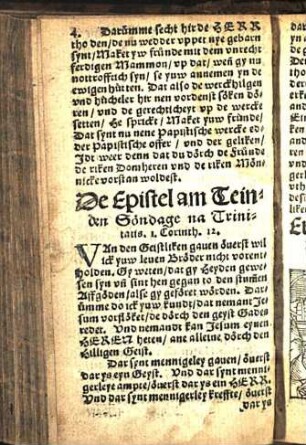 4. Darümme secht hir de HERR
tho den / de nu wedder vppet nye gebarn
synt / Maket yw fründe mit dem vnrech
ferdigen Mammon / vp dat / weñ gy nu
nottrofftich syn / se yuw annemen yn de
ewigen hütten. Dat alse de werckhilgen
vnd hücheler hir nen vordenst söken dö-
ren / vnd de gerechticheyt vp de wercke
setten / He sprickt / Maket yuw fründe /
Dat synt nu nene Papistische wercke ed-
der Papistische offer / vnd der geliken /
Jdt weer denn dat du dörch de Fründe
de riken Domheren vnd de riken Mön-
nicke vorstan woldest.
De Epistel am Tein-
den Söndage na Trini-
tatis. 1. Corinth. 12.
VAn den Geistliken gauen öuerst wil
ick yuw leuen Bröder nicht vorent-
holden. Gy weten / dat gy Heyden gewe-
sen syn vñ sint hen gegan to den stum̃en
Affgöden / alse gy geföret wörden. Dar-
ümme do ick yuw kundt / dat nemant Je-
sum vorflöket / de dörch den geyst Gades
redet. Vnd nemandt kan Jesum eynen
HEREN heten / ane alleine dörch den
Hilligen Geist.
Dar synt mennigerley gauen / öuerst
dar ys eyn Geyst. Vnd dar synt menni-
gerleye ampte / öuerst dar ys ein HERR.
Vnd dar synt mennigerley kreffte / öuerst
dar ys